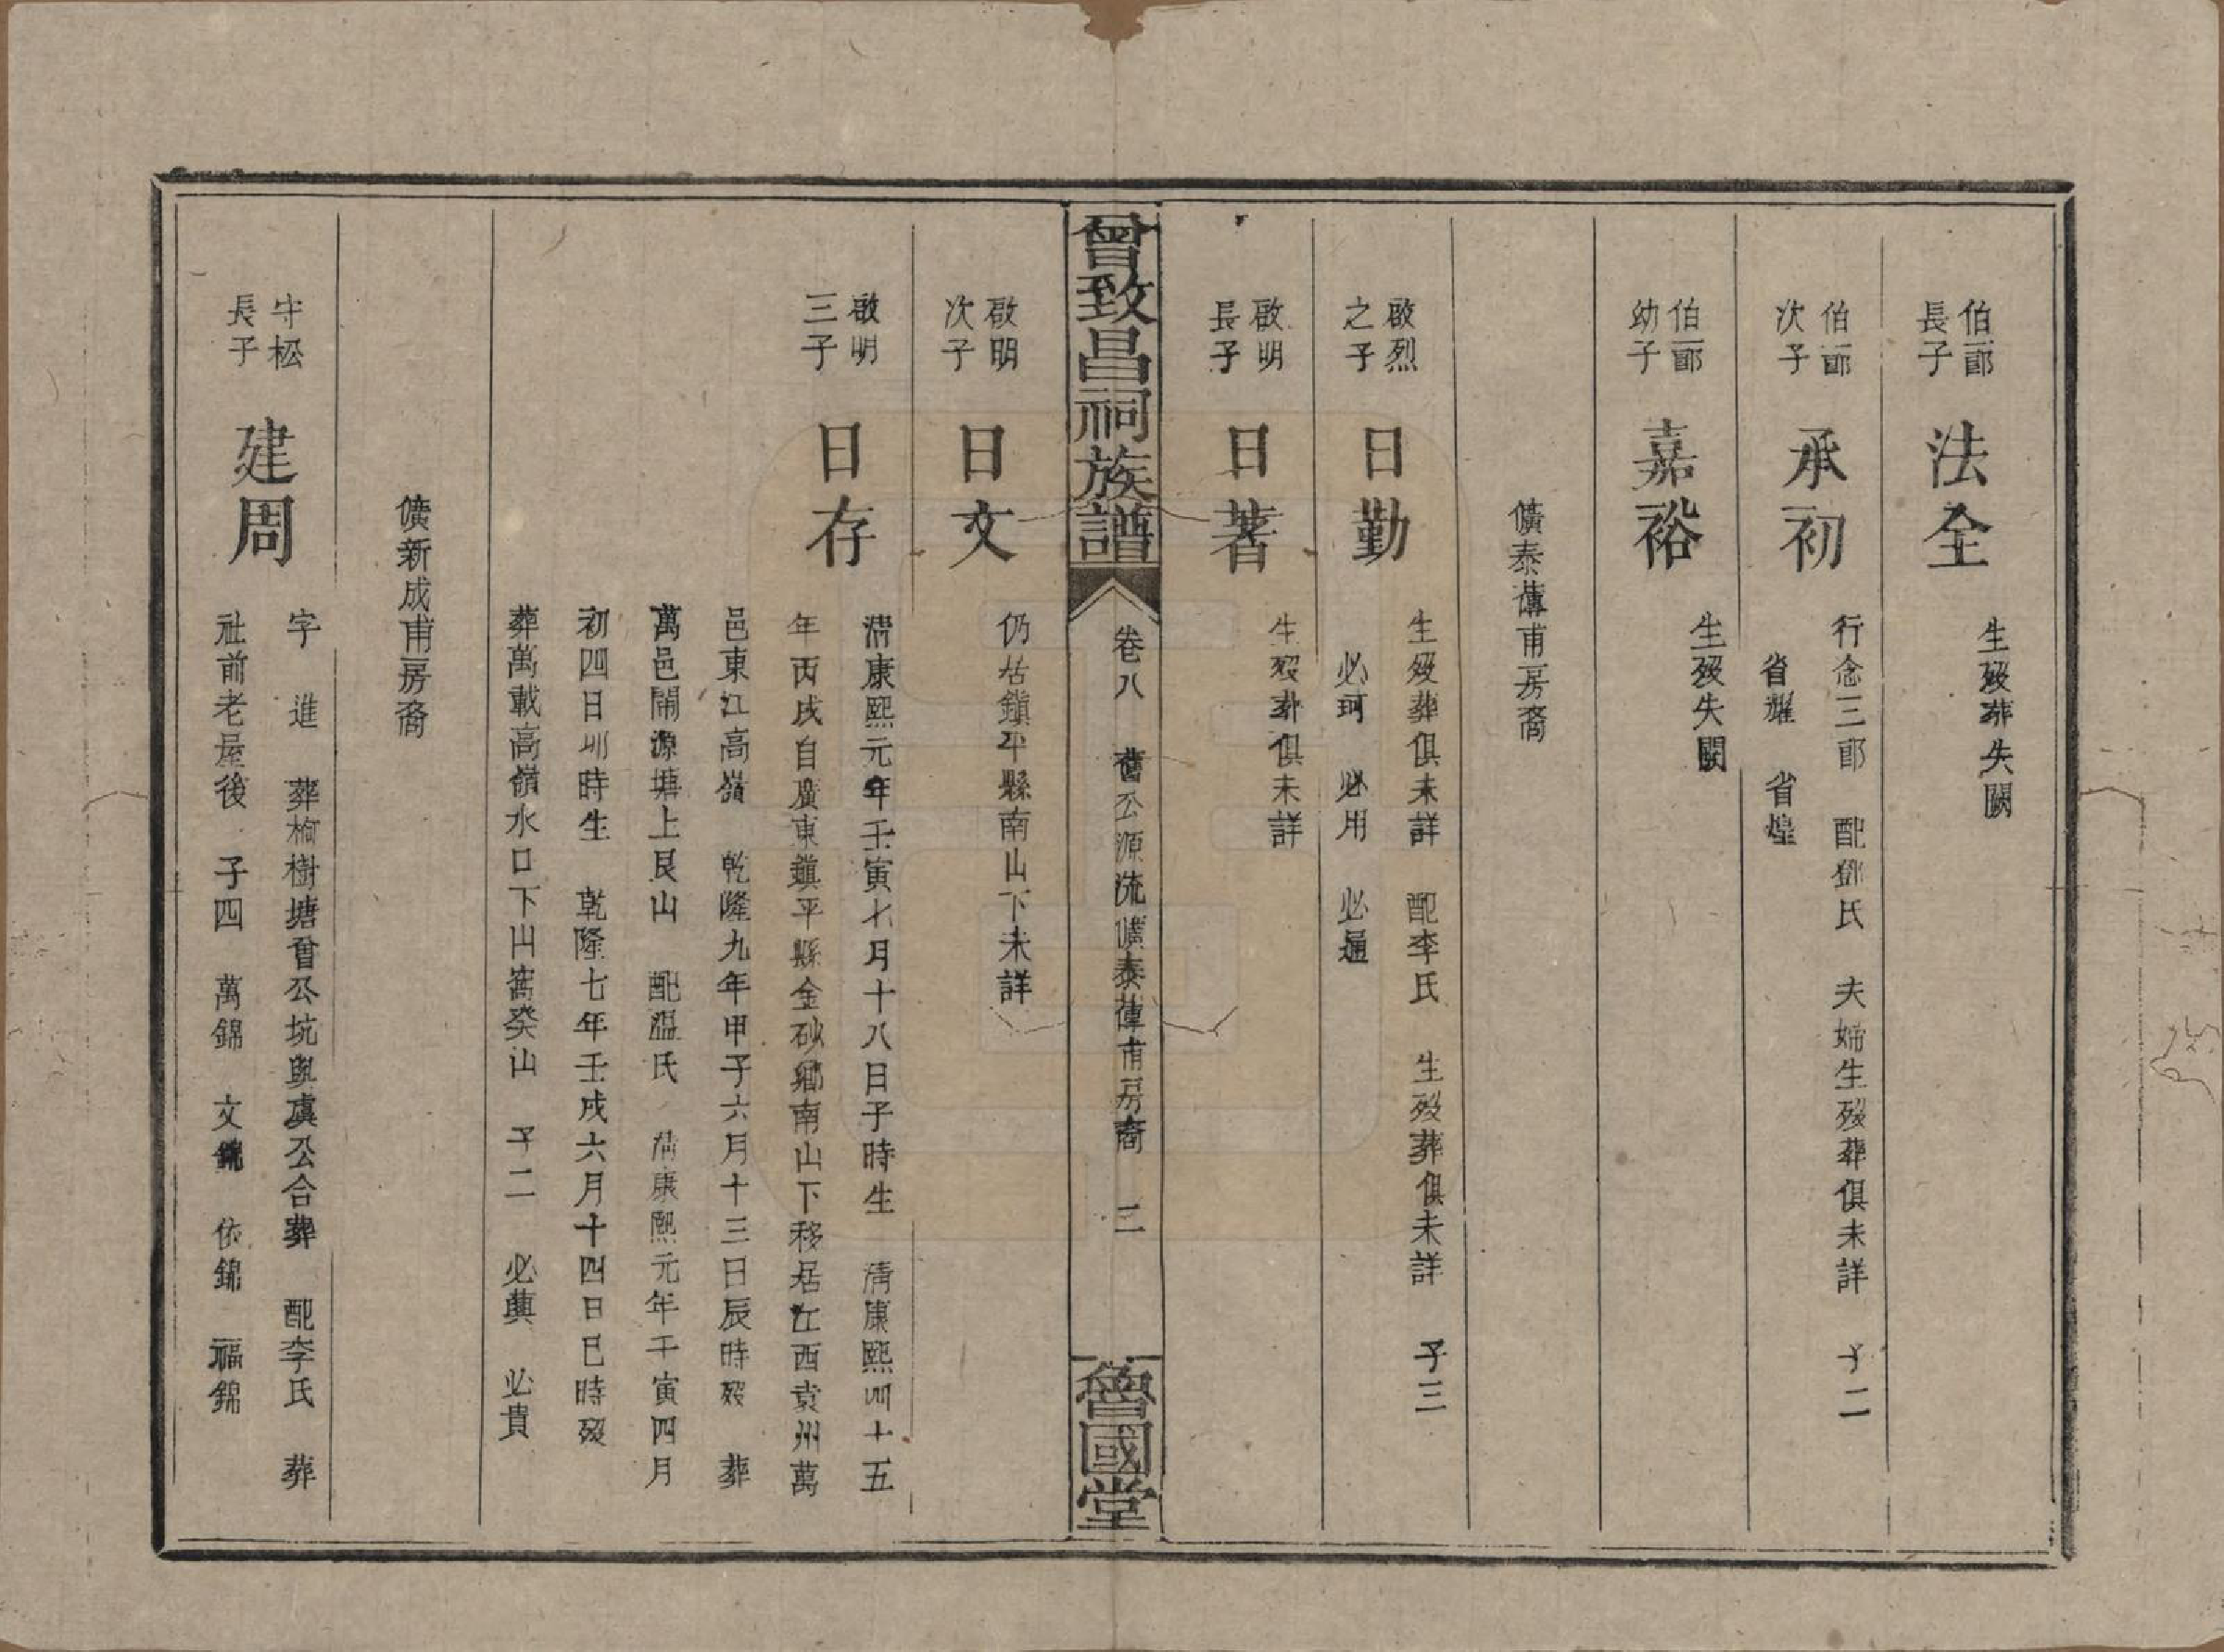 伯一郎
長子
法全
生殁葬失闕
伯一郎
次子
承初
行念三郎 配鄧氏 夫婦生殁葬俱未詳 子二
省耀 省煌
伯一郎
幼子
嘉裕
生殁失闕
儣泰傳甫房裔
啟烈
之子
日勤
生殁葬俱未詳 配李氏 生殁葬俱未詳 子三
必珂 必用 必通
啟明
長子
日著
生殁葬俱未詳
曾致昌祠族譜
卷八 舊公源流儣泰傳甫房裔 二
魯國堂
啟明
次子
日文
仍居鎮平縣南山下未詳
啟明
三子
日存
清康熙元年壬寅七月十八日子時生 清康熙四十五
年丙戌自廣東鎮平縣金砂鄉南山下移居江西袁州萬
邑東江高嶺 乾隆九年甲子六月十三日辰時殁 葬
萬邑鬧源塘上艮山 配溫氏 清康熙元年壬寅四月
初四日卯時生 乾隆七年壬戌六月十四日巳時殁
葬萬載高嶺水口下山窩癸山 子二 必興 必貴
儣新成甫房裔
守松
長子
建周
字進 葬栴樹塘曾公坑與虞公合葬 配李氏 葬
社前老屋後 子四 萬錦 文錦 依錦 福錦